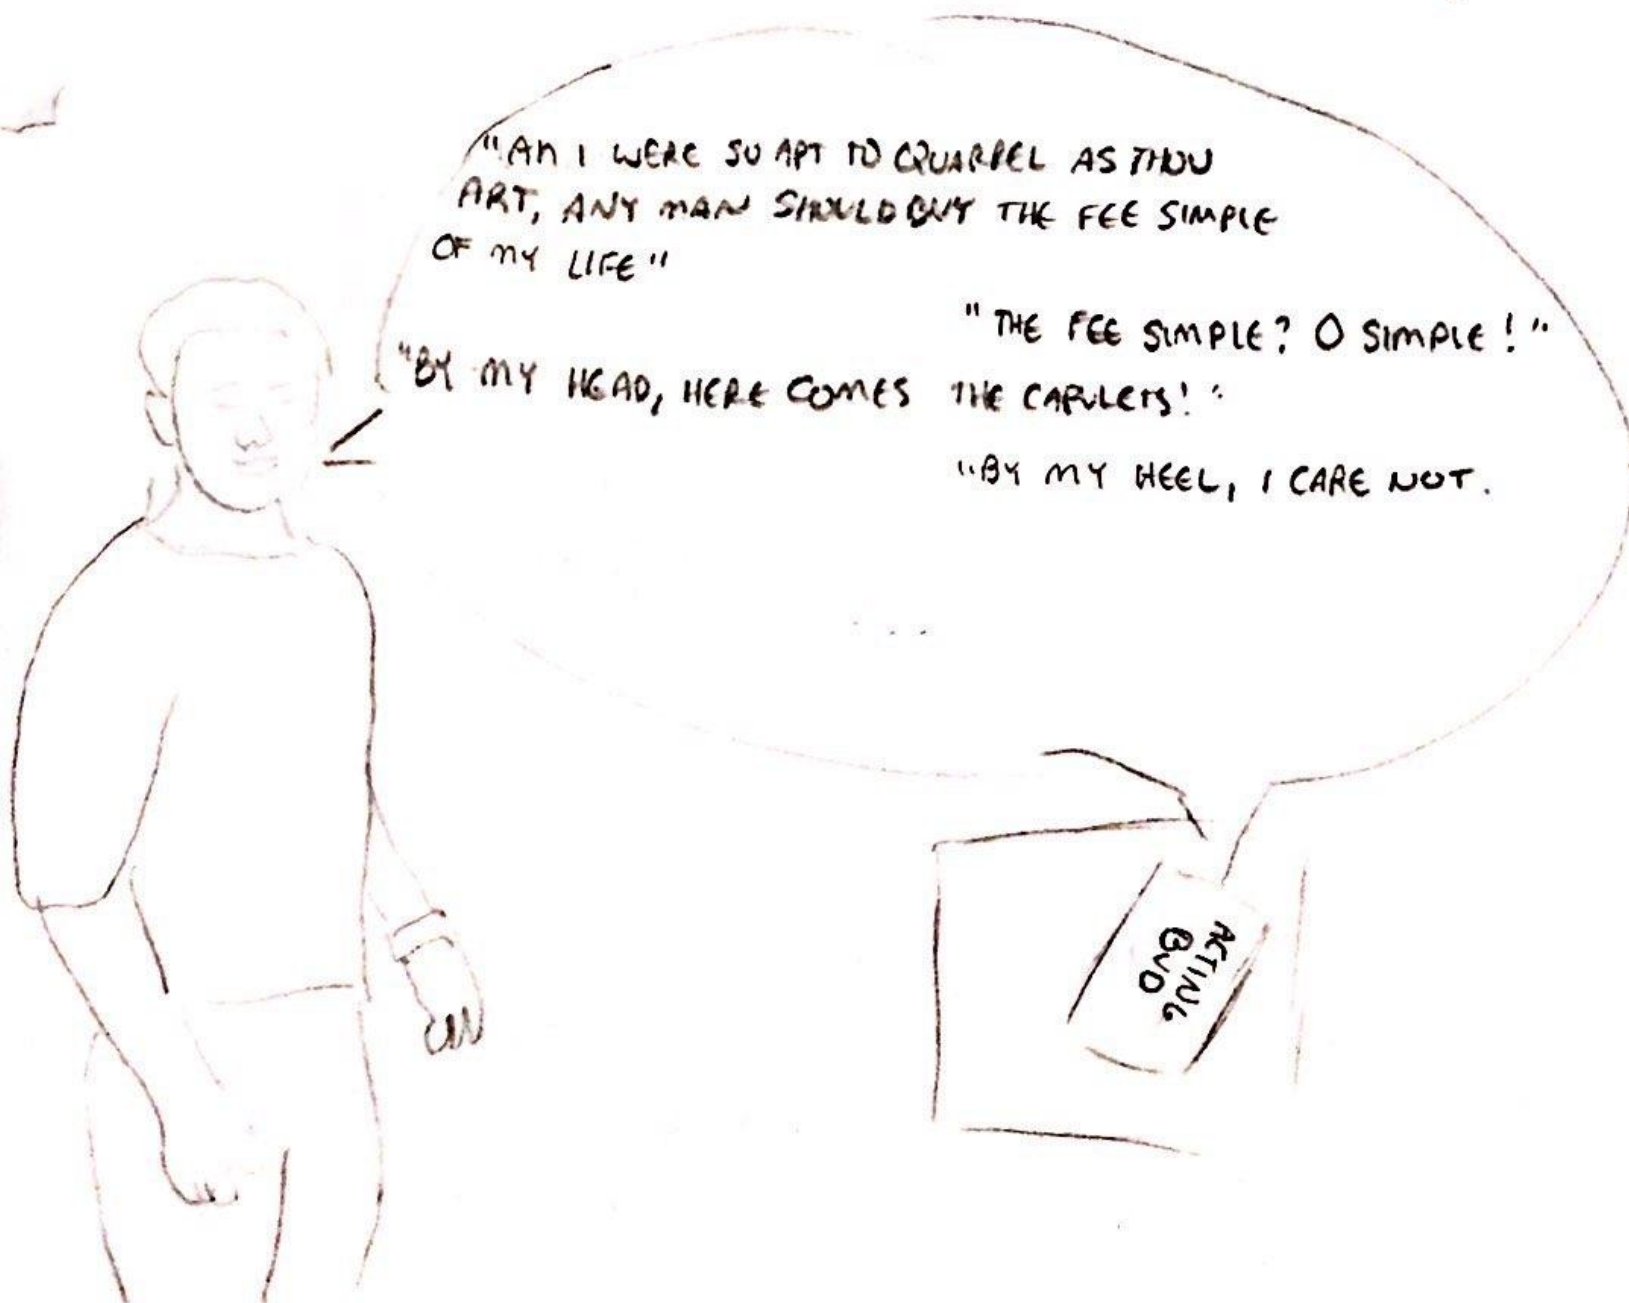 "AN I WERE SO APT TO QUARREL AS THOU
ART, ANY MAN SHOULD BUY THE FEE SIMPLE
OF MY LIFE"
"THE FEE SIMPLE? O SIMPLE!"
"BY MY HEAD, HERE COMES THE CAPULETS!"
"BY MY HEEL, I CARE NOT.
...
ACTING
BUD